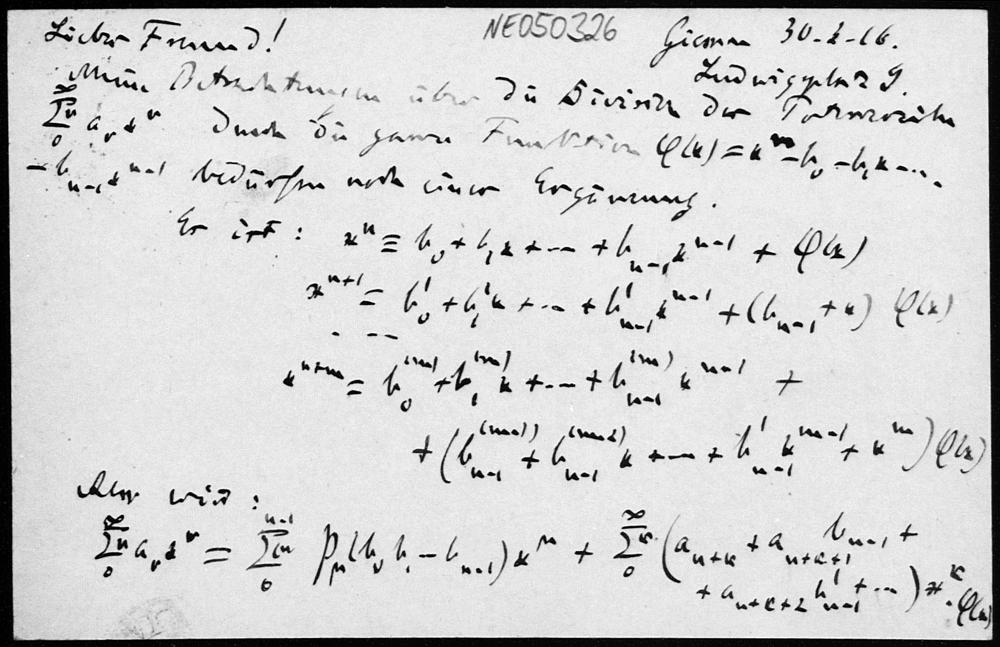 Lieber Freund! NE050326 Giessen 30-X-16.
Ludwigsplatz 9.
Meine Betrachtungen über die Division der Potenzreihe
∑_0^∞ν a_ν x^ν durch die ganze Funktion φ(x) = x^n - b_0 - b_1x - ...
- b_{n-1} x^{n-1} bedürfen noch einer Ergänzung.
Es ist: x^n ≡ b_0 + b_1x + ... + b_{n-1} x^{n-1} + φ(x)
x^{n+1} = b_0' + b_1'x + ... + b_{n-1}' x^{n-1} + (b_{n-1} + x) φ(x)
. . . .
x^{n+m} = b_0^{(m)} + b_1^{(m)} x + ... + b_{n-1}^{(m)} x^{n-1} +
+ (b_{n-1}^{(m-1)} + b_{n-1}^{(m-2)} x + ... + b_{n-1}' x^{m-1} + x^m) φ(x)
Also wird:
∑_0^∞ν a_ν x^ν = ∑_0^{n-1}μ p_μ(b_0 b_1 - b_{n-1}) x^μ + ∑_0^∞κ (a_{n+κ} + a_{n+κ+1} b_{n-1} +
+ a_{n+κ+2} b_{n-1}' + ...) x^κ · φ(x)